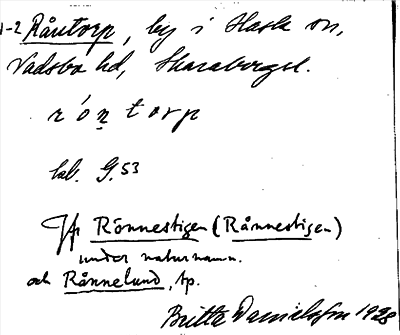 1-2 Råntorp, by i Hasle sn,
Vadsbo hd, Skarab.gsl.
rón̥torp
kab. G.53
Jfr Rönnestigen (Rånnestigen)
under naturnamn.
och Rånnelund, tp.
Britta Danielsson 1928